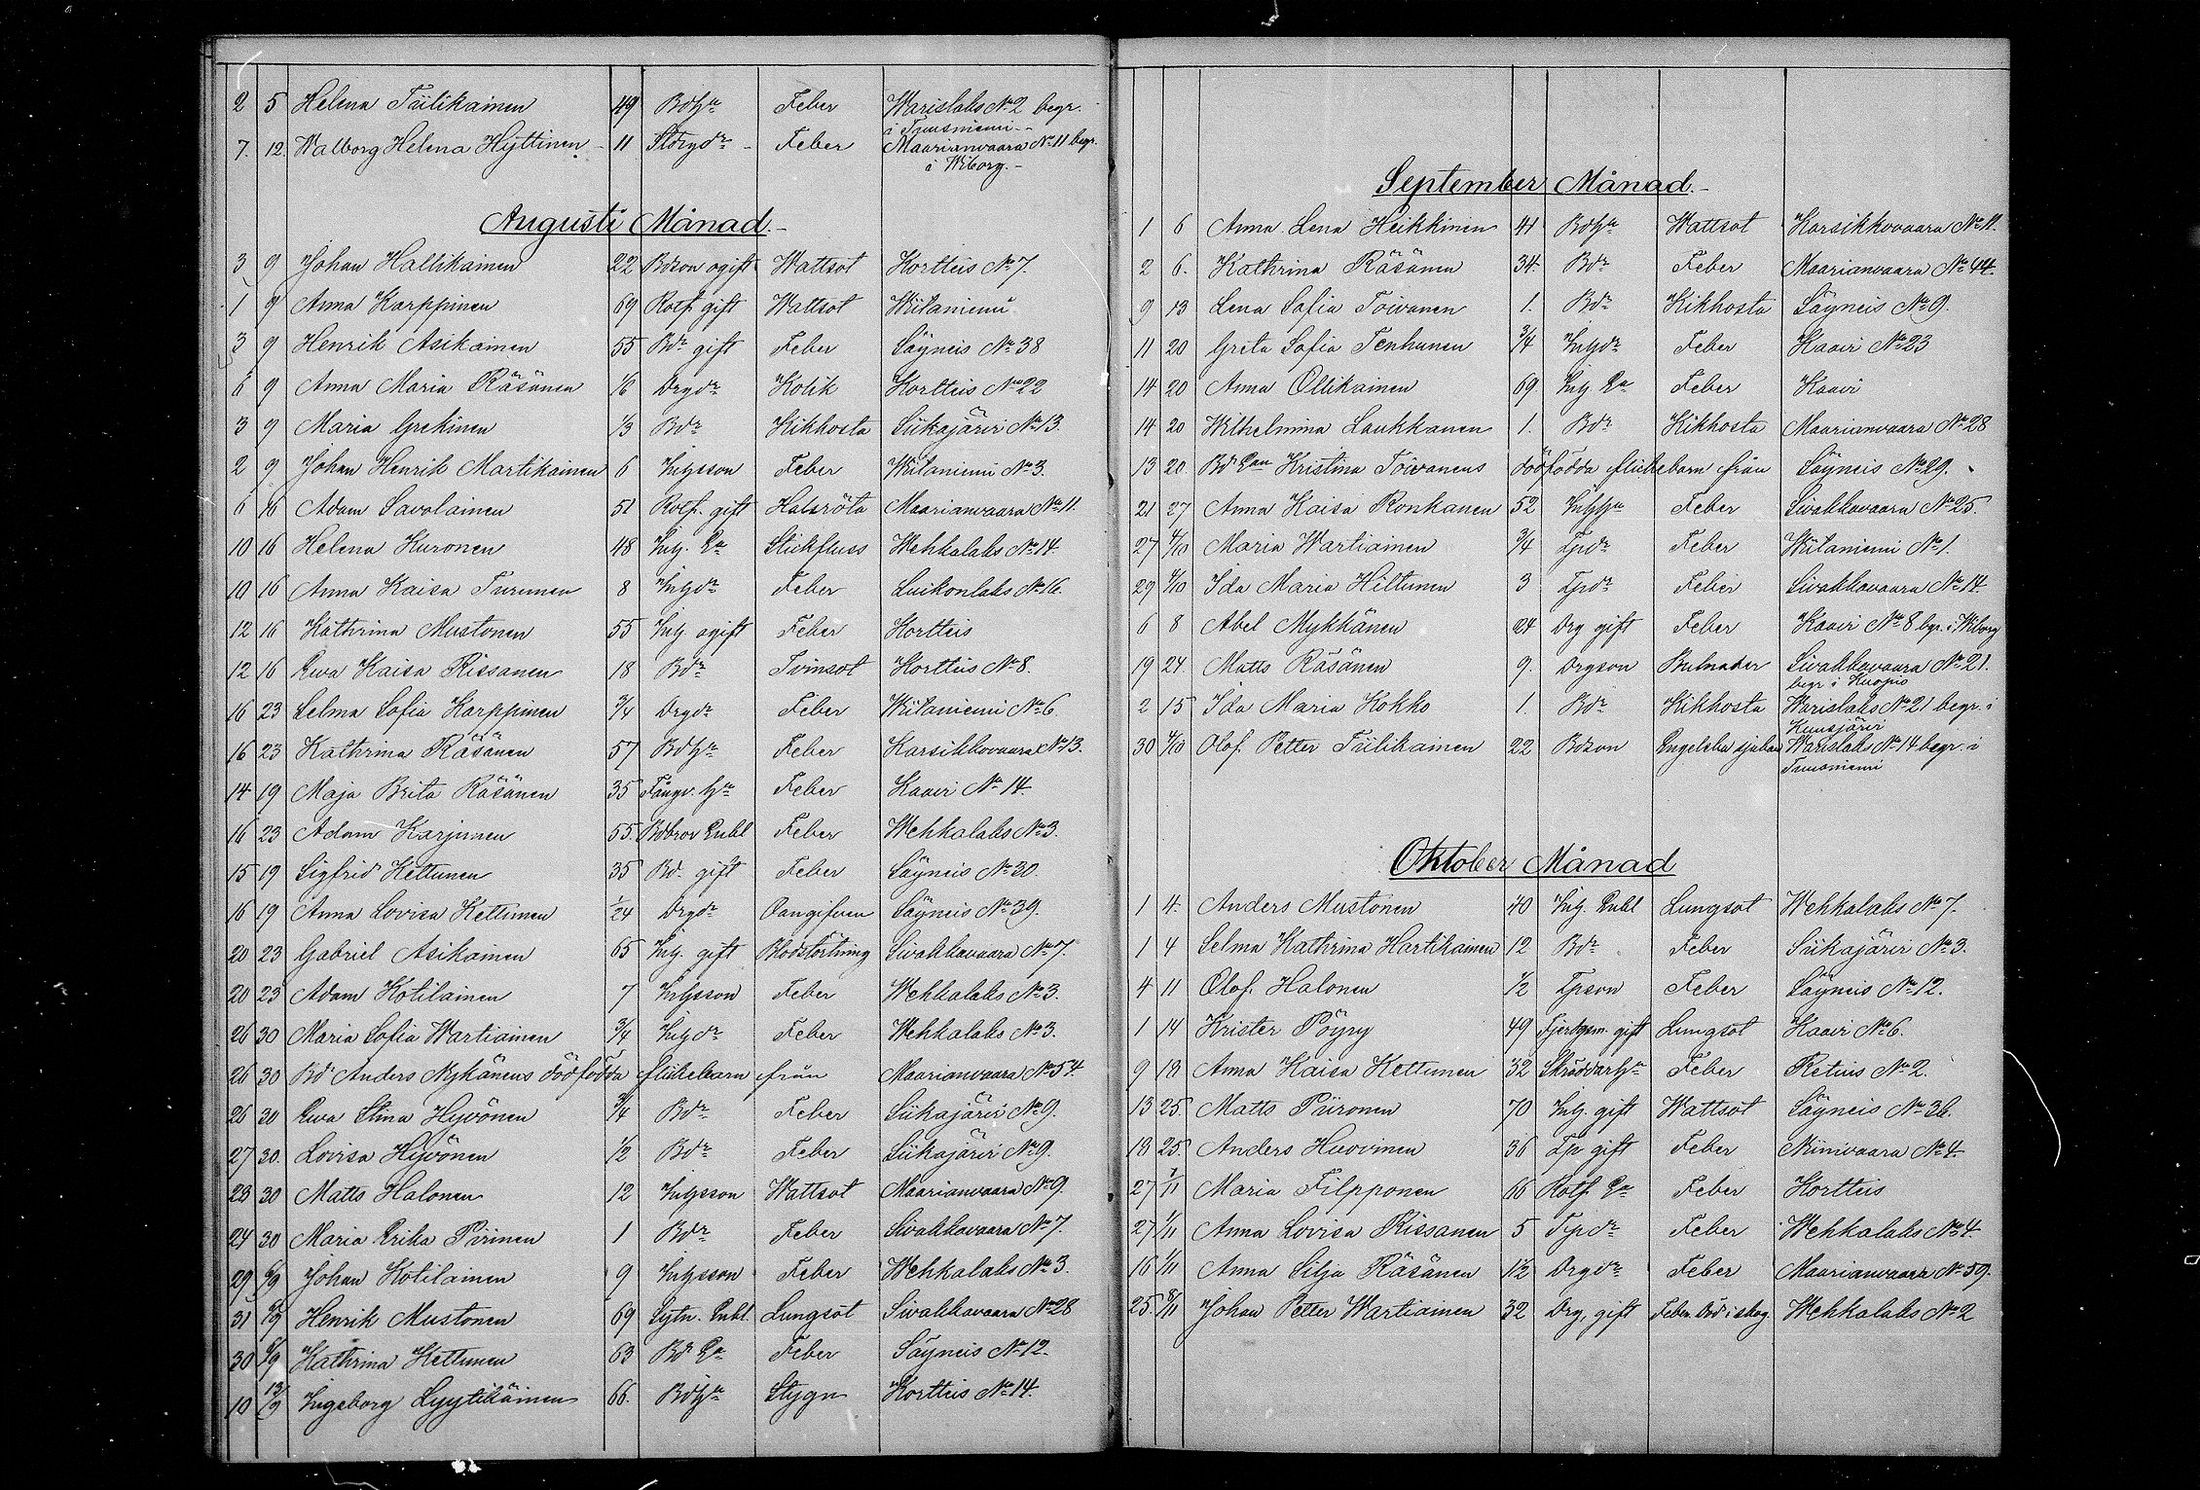 2 5 Helena Tiilikainen 49 Bdhu Feber Warislaks No 2 begr.
i Tuusniemi
7. 12. Walborg Helena Hyttinen 11 Feber Maarianvaara No 11 begr.
i Wiborg.
Augusti Månad.
3 9 Johan Hallikainen 22 Bdson ogift Wattsot Korttis No 7.
1 9 Anna Karppinen 69 Rotf. gift Wattsot Wiitaniemi
3 9 Henrik Asikainen 55 Bdr gift Feber Säyneis No 38
6 9 Anna Maria Räsänen 1/6 Drgdr Kolik Korttis No 22
3 9 Maria Grekinen 1/3 Bdr Kikhosta Siikajärvi No 13.
2 9 Johan Henrik Martikainen 6 Inhysson Feber Wiitaniemi No 3.
6 16 Adam Savolainen 51 Rotf. gift Halsröta Maarianvaara No 11.
10 16 Helena Kuronen 48 Inh. Ea Stickfluss Wehkalaks No 14.
10 16 Anna Kaisa Turunen 8 Inhdr Feber Luikonlaks No 16.
12 16 Kathrina Mustonen 55 Inh ogift Feber Korttis
12 16 Ewa Kaisa Rissanen 18 Bdr Tvinsot Korttis No 8.
16 23 Selma Sofia Karppinen 3/4 Drgdr Feber Wiitaniemi No 6.
16 23 Kathrina Räsänen 57 Bdhu Feber Karsikkovaara No 13.
14 19 Maja Brita Räsänen 35 Fångv. hu Feber Kaavi No 14.
16 23 Adam Karjunen 55. Bdbror Enkl Feber Wehkalaks No 3.
15 19 Sigfrid Kettunen 35 Bd. gift Feber Säyneis No 30.
16 19 Anna Lovisa Kettunen 1/24 Drgdr Oangifven Säyneis No 39.
20 23 Gabriel Asikainen 65 Inh. gift Blodstörtning Sivakkavaara No 7.
20 23 Adam Kotilainen 7 Inhysson Feber Wehkalaks No 3.
26 30 Maria Sofia Wartiainen 3/4 Inhdr Feber Wehkalaks No 3.
26 30 Bd Anders Nykänens dödfödda flickebarn från Maarianvaara No 54.
26 30 Ewa Stina Hyvönen 3/4 Bdr Feber Siikajärvi No 9.
27 30. Lovisa Hyvönen 1/2 Bdr Feber Siikajärvi No 9.
23 30 Matts Halonen 12 Inhysson Wattsot Maarianvaara No 9.
24 30 Maria Erika Piirinen 1 Bdr Feber Sivakkavaara No 7.
29 6/9 Johan Kotilainen 9 Inhysson Feber Wehkalaks No 3.
31 6/9 Henrik Mustonen 69 Sytn. Enkl. Lungsot Sivakkavaara No 28
30 6/9 Kathrina Kettunen 63 Bd Ea Feber Säyneis No 12.
10 13/9 Ingeborg Lyytikäinen 66. Bdhu Stygn Korttis No 14.
September Månad.
1 6 Anna Lena Heikkinen 41 Bdhu Wattsot Karsikkovaara No 11.
2 6. Kathrina Räsänen 34. Bdr Feber Maarianvaara No 44.
9 13 Lena Sofia Toivanen 1. Bdr Kikhosta Säyneis No 9.
11 20 Greta Sofia Tenhunen 3/4 Inhdr Feber Kaavi No 23
14 20 Anna Ollikainen 69 Inh. Ea Feber Kaavi
14 20 Wilhelmina Laukkanen 1. Bdr Kikhosta Maarianvaara No 28
13 20. Bd Ean Kristina Toivanens dödfödda flickebarn från Säyneis No 29.
21 27 Anna Kaisa Ronkanen 52 Inhhu Feber Sivakkavaara No 25.
27 4/10 Maria Wartiainen 3/4 Tpdr Feber Wiitaniemi No 1.
29 4/10 Ida Maria Hiltunen 3 Tpdr Feber Sivakkavaara No 14.
6 8 Abel Mykkänen 24 Drg gift Feber Kaavi No 8 bgr. i Wiborg
19 24 Matts Räsänen 9. Drgson Bulnader Sivakkavaara No 21.
begr i Kuopio
2 15 Ida Maria Kokko 1. Bdr Kikhosta Warislaks No 21 begr. i
Kuusjärvi
30 4/10 Olof Petter Tiilikainen 22 Bdson Engelska sjukan Warislaks No 14 begr. i
Tuusniemi
Oktober Månad
1 4. Anders Mustonen 40 Inh. Enkl Lungsot Wehkalaks No 7.
1 4 Selma Kathrina Hartikainen 12 Bdr Feber Siikajärvi No 3.
4 11 Olof Halonen 1/2 Tpson Feber Säyneis No 12.
1 14 Krister Pöyry 49 Fjerdgsm. gift Lungsot Kaavi No 6.
9 18 Anna Kaisa Kettunen 32 Skräddarhu Feber Retius No 2.
13 25. Matts Piironen 70 Inh. gift Wattsot Säyneis No 36.
18 25. Anders Huovinen 36 Tp gift Feber Niinivaara No 4.
27 1/11 Maria Filpponen 66 Rotf. Ea Feber Korttis
27 1/11 Anna Lovisa Rissanen 5 Tpdr Feber Wehkalaks No 4.
16 1/11 Anna Silja Räsänen 1/2 Drgdr Feber Maarianvaara No 59.
25. 8/11 Johan Petter Wartiainen 32 Drg. gift Feber. Död i skog. Wehkalaks No 2